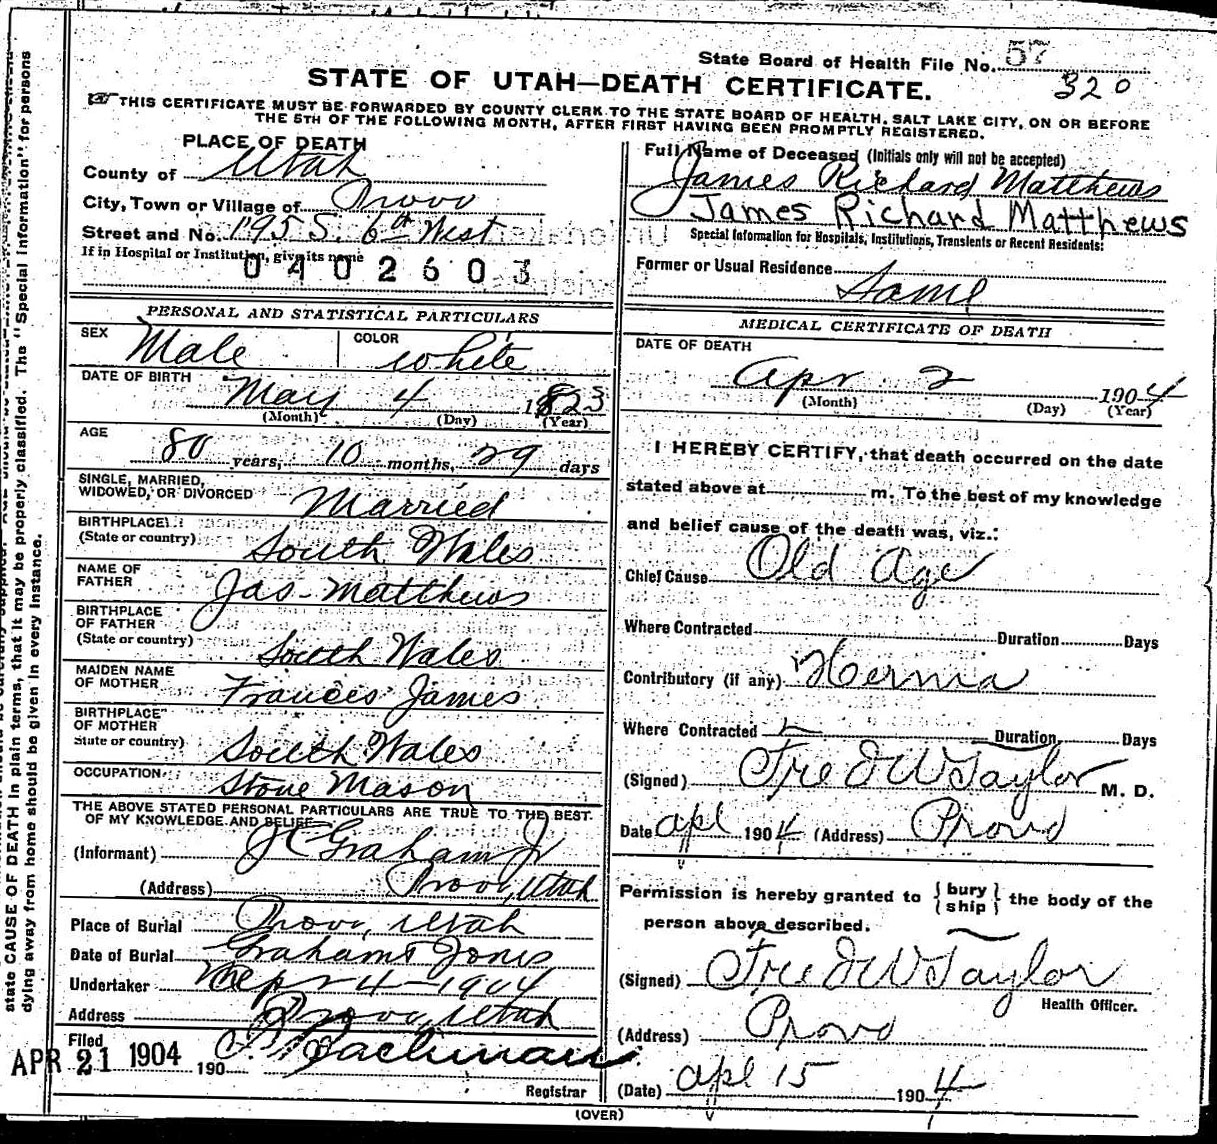 State Board of Health File No. 57
320
STATE OF UTAH—DEATH CERTIFICATE.
THIS CERTIFICATE MUST BE FORWARDED BY COUNTY CLERK TO THE STATE BOARD OF HEALTH, SALT LAKE CITY, ON OR BEFORE
THE 5TH OF THE FOLLOWING MONTH, AFTER FIRST HAVING BEEN PROMPTLY REGISTERED.
PLACE OF DEATH
County of Utah
City, Town or Village of Provo
Street and No. 195 S. 6th West
If in Hospital or Institution, give its name
0402603
Full Name of Deceased (Initials only will not be accepted)
James Richard Matthews
James Richard Matthews
Special Information for Hospitals, Institutions, Transients or Recent Residents:
Former or Usual Residence
Same
PERSONAL AND STATISTICAL PARTICULARS
SEX Male COLOR white
DATE OF BIRTH May 4 1823
(Month) (Day) (Year)
AGE 80 years, 10 months, 29 days
SINGLE, MARRIED,
WIDOWED, OR DIVORCED Married
BIRTHPLACE
(State or country) South Wales
NAME OF
FATHER Jas. Matthews
BIRTHPLACE
OF FATHER
(State or country) South Wales
MAIDEN NAME
OF MOTHER Frances James
BIRTHPLACE
OF MOTHER
State or country) South Wales
OCCUPATION Stone Mason
THE ABOVE STATED PERSONAL PARTICULARS ARE TRUE TO THE BEST
OF MY KNOWLEDGE AND BELIEF
(Informant) J C Graham Jr
(Address) Provo, Utah
Place of Burial Provo, Utah
Date of Burial Grahams Jones
Undertaker Apr 4 - 1904
Address Provo, Utah
Filed
APR 21 1904 190
Registrar
MEDICAL CERTIFICATE OF DEATH
DATE OF DEATH
Apr 2 1904
(Month) (Day) (Year)
I HEREBY CERTIFY, that death occurred on the date
stated above at m. To the best of my knowledge
and belief cause of the death was, viz.:
Chief Cause Old Age
Where Contracted Duration Days
Contributory (if any) Hernia
Where Contracted Duration Days
(Signed) Fred W Taylor M. D.
Date Apl 1904 (Address) Provo
Permission is hereby granted to {bury
ship} the body of the
person above described.
(Signed) Fred W Taylor
Health Officer.
(Address) Provo
(Date) Apl 15 1904
(OVER)
state CAUSE OF DEATH in plain terms, that it may be properly classified. The "Special Information" for persons
dying away from home should be given in every instance.